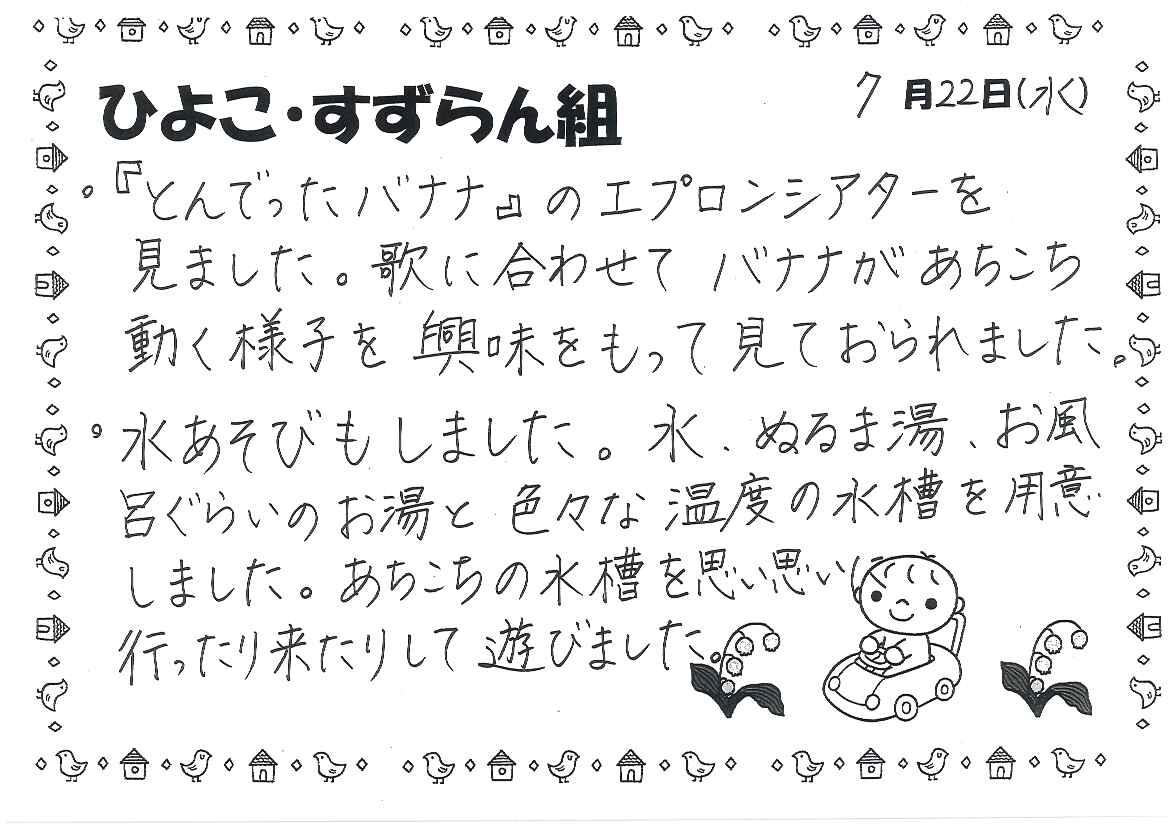 ひよこ・すずらん組
7月22日(水)
。『とんでったバナナ』のエプロンシアターを
見ました。歌に合わせてバナナがあちこち
動く様子を興味をもって見ておられました。
。水あそびもしました。水、ぬるま湯、お風
呂ぐらいのお湯と色々な温度の水槽を用意
しました。あちこちの水槽を思い思いに
行ったり来たりして遊びました。